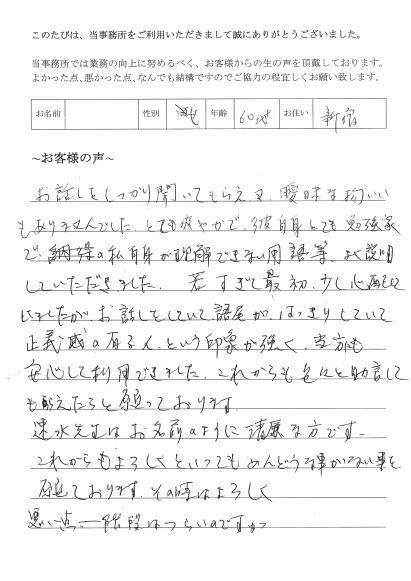 このたびは、当事務所をご利用いただきまして誠にありがとうございました。
当事務所では業務の向上に努めるべく、お客様からの生の声を頂戴しております。
よかった点、悪かった点、なんでも結構ですのでご協力の程宜しくお願い致します。
お名前 性別 年齢 60才 お住い 新宿
~お客様の声~
お話しをしっかり聞いてもらえ又、曖昧な物いい
もありませんでした。とても爽やかで、彼自身とても勉強家
で、納得の私自身が理解できない用語等、よく説明
していただきました。若すぎて最初、少し心配を
しましたが、お話しをしていて語尾が、はっきりしていて
正義感の有る人、という印象が強く、当方も
安心して利用できました。これからも色々と助言して
もらえたらと願っております。
速水先生はお名前のように清廉な方です。
これからもよろしくといってもめんどうな事がない事を
願っております。その時はよろしく
悪い点 ー 階段はつらいのですが